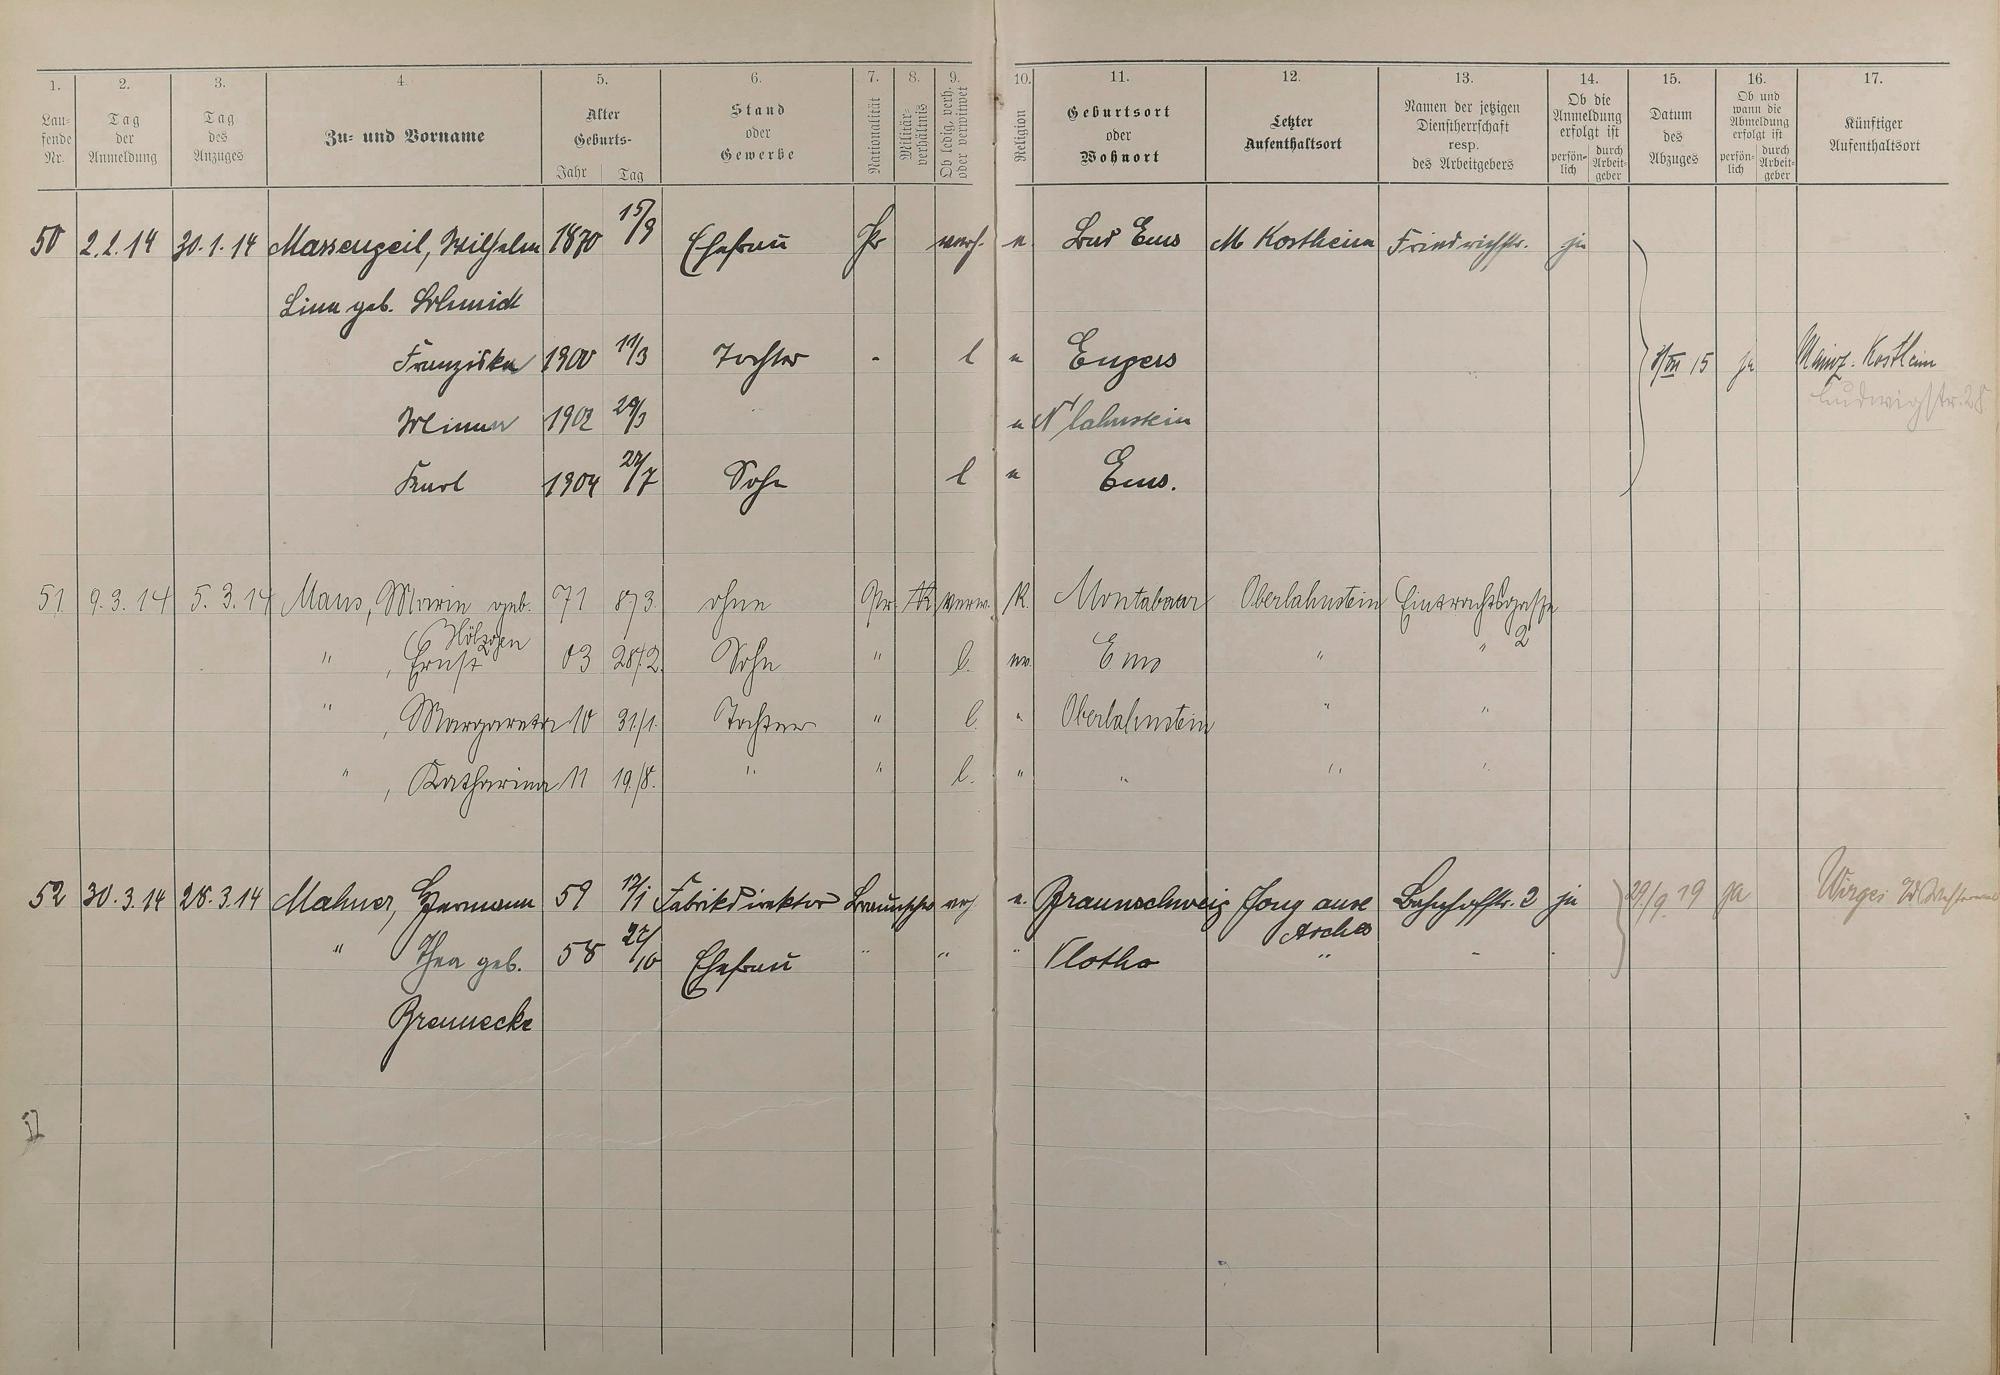 1. 2. 3. 4. 5. 6. 7. 8. 9. 10. 11. 12. 13. 14. 15. 16. 17.
Lau-
fende
Nr.
Tag
der
Anmeldung
Tag
des
Anzuges
Zu- und Vorname
Alter
Geburts-
Jahr Tag
Stand
oder
Gewerbe
Nationalität
Militär-
verhältnis
Ob ledig, verh.
oder verwitwet
Religion
Geburtsort
oder
Wohnort
Letzter
Aufenthaltsort
Namen der jetzigen
Dienstherrschaft
resp.
des Arbeitgebers
Ob die
Anmeldung
erfolgt ist
persön-
lich
durch
Arbeit-
geber
Datum
des
Abzuges
Ob und
wann die
Abmeldung
erfolgt ist
persön-
lich
durch
Arbeit-
geber
Künftiger
Aufenthaltsort
50 2.2.14 30.1.14 Massengeil, Wilhelm 1870 15/9 Ehefrau Pr verh. Bad Ems M Kostheim Friedrichstr. ja
Lina geb. Schmidt
Franziska 1900 11/3 Tochter l " Engers 15 ja Mainz-Kostheim
Ludwigstr. 28
Minna 1902 29/3 " N'lahnstein
Karl 1904 27/7 Sohn l " Ems.
51 9.3.14 5.3.14 Maus, Marie geb. 71 8/3. ohne Pr. verw. K. Montabaur Oberlahnstein Eintrachtsgasse
2
" , Ernst 03 28/2. Sohn " l. Ems " "
" , Margareta 10 31/1. Tochter " l. " Oberlahnstein " "
" , Katharina 11 19/8. " " l. " " " "
52 30.3.14 28.3.14 Mahner, Hermann 59 12/1 Fabrikdirektor Braunschw Braunschweig Bahnhofstr. 2 ja 29/9 19 ja Wirges
" Thea geb. 58 22/10 Ehefrau " " " Vlotho " "
Brennecke